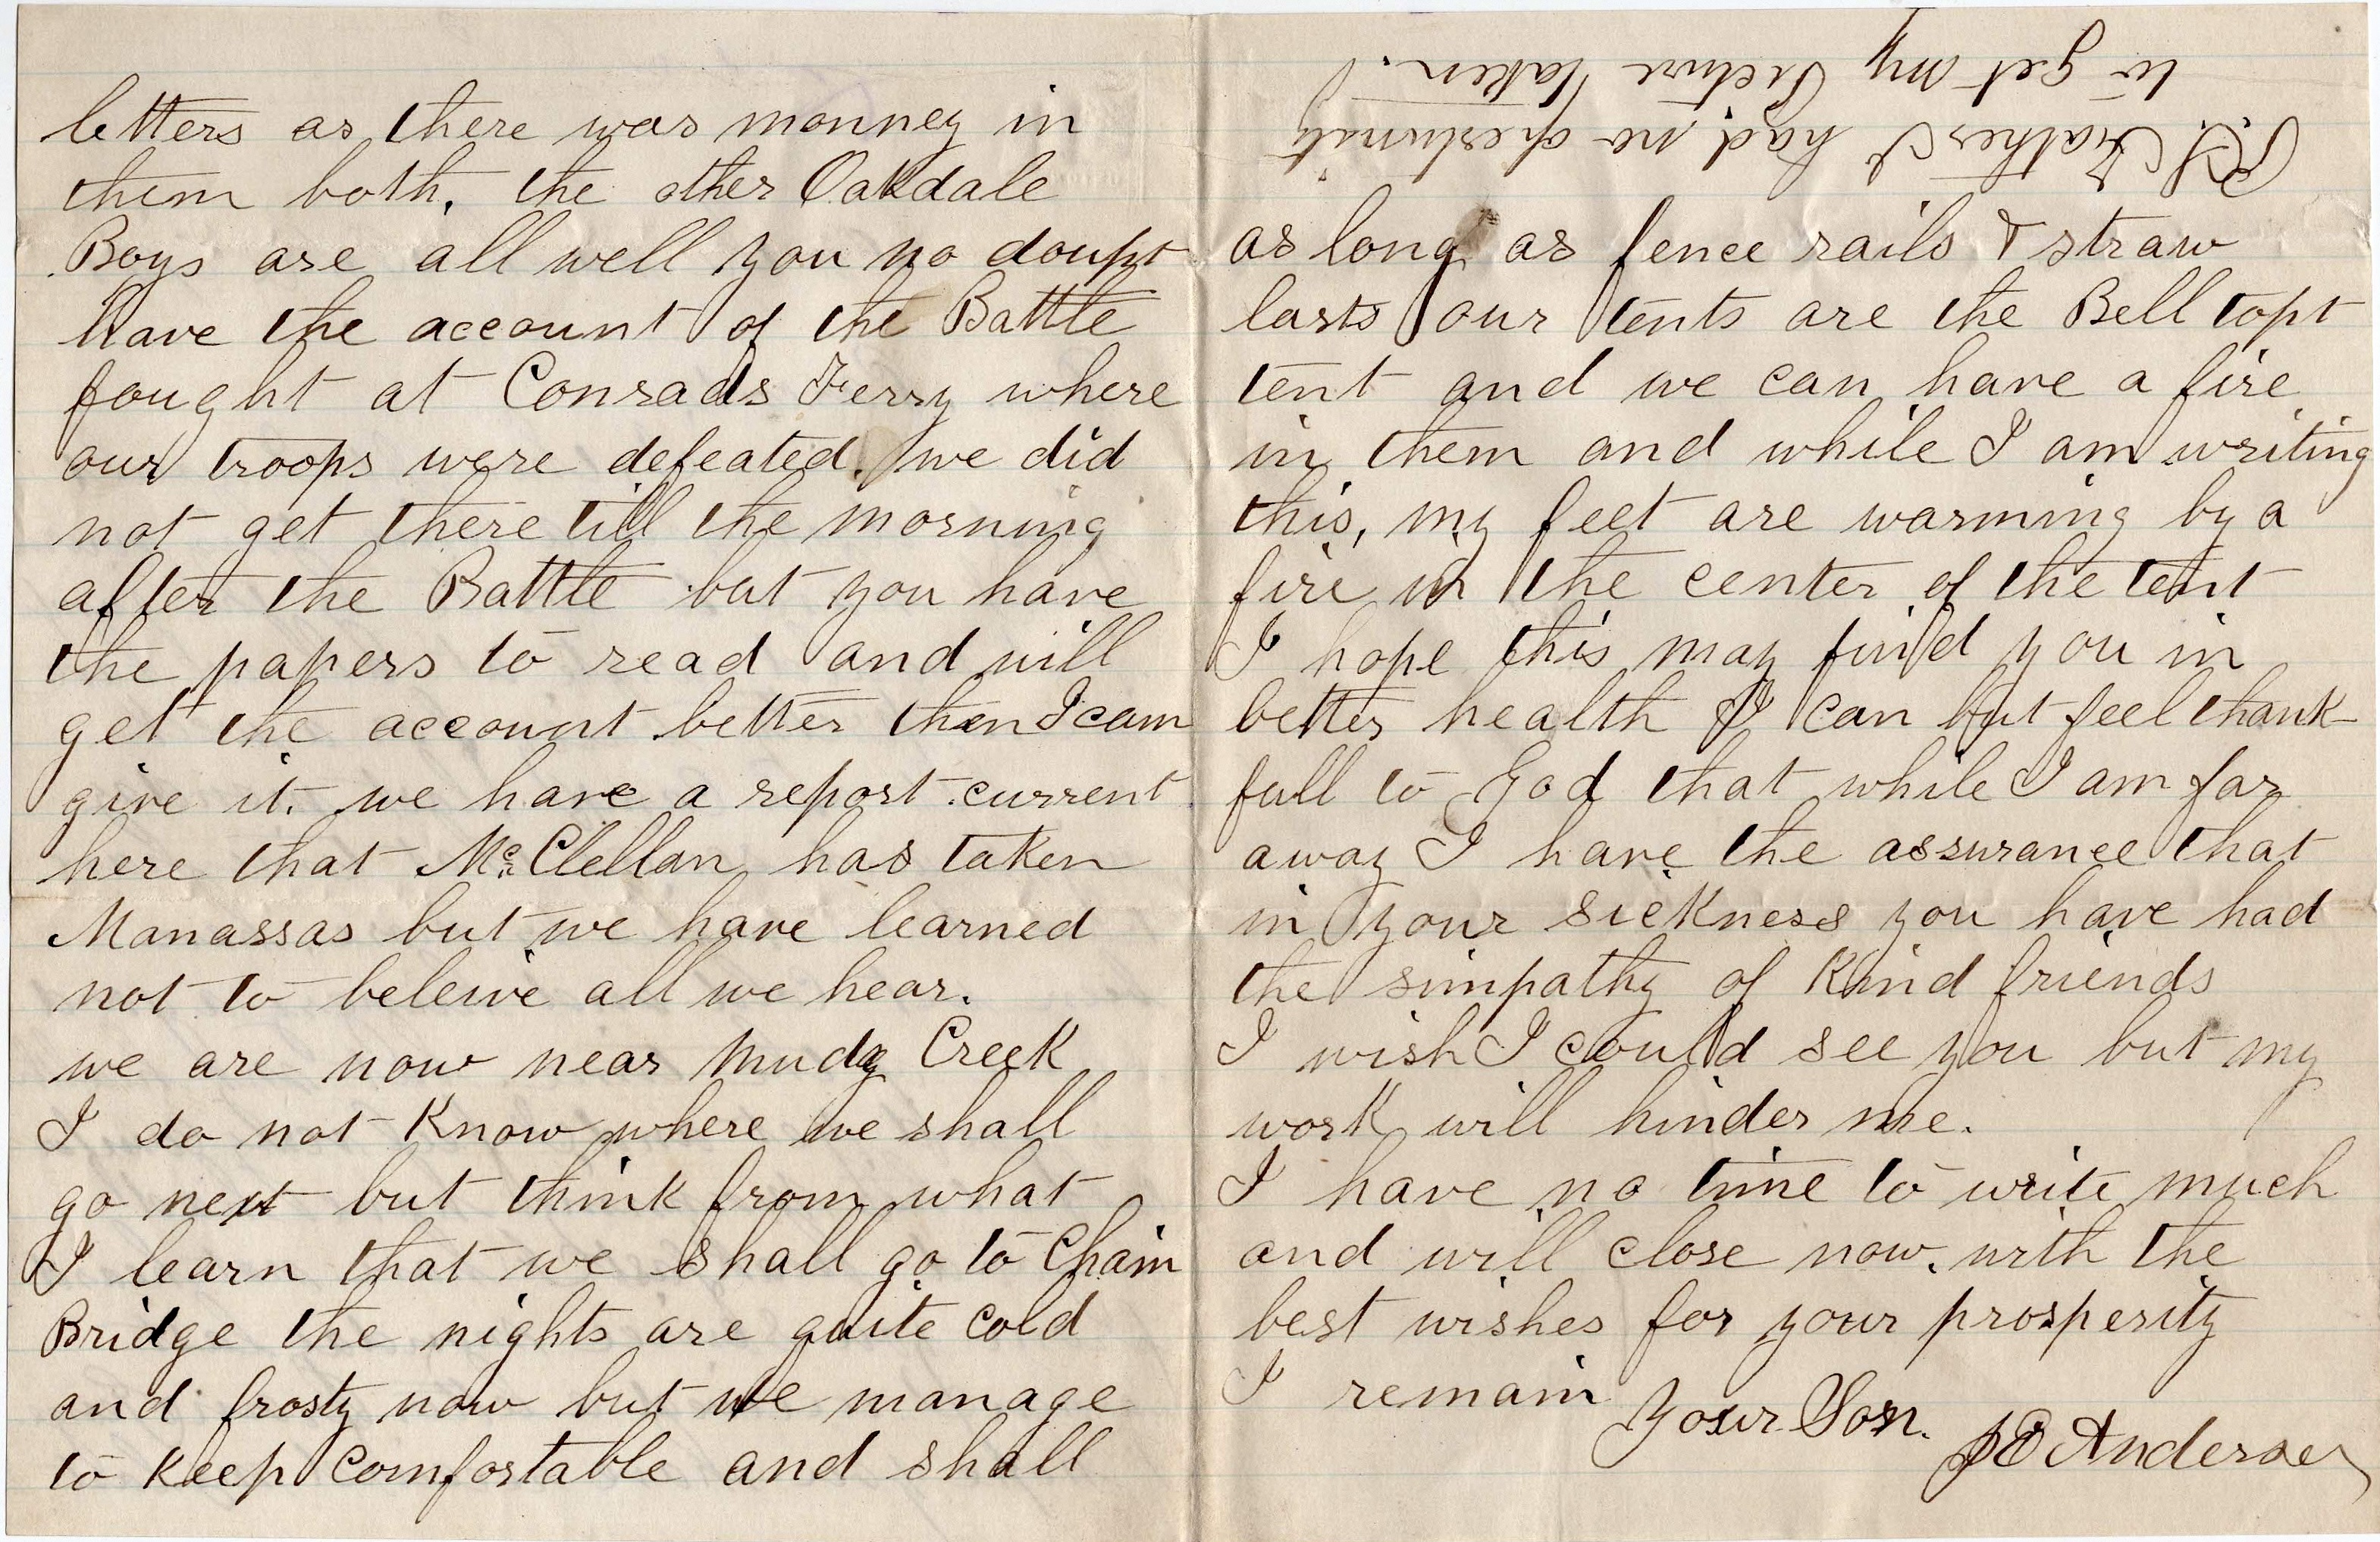 letters as there was monney in
them both. the other Oakdale
Boys are all well you no doupt
have the account of the Battle
fought at Conrads Ferry where
our troops were defeated. we did
not get there till the morning
after the Battle but you have
the papers to read and will
get the account better then I can
give it. we have a report current
here that McClellan has taken
Manassas but we have learned
not to beleive all we hear.
we are now near Mudy Creek
I do not Know where we shall
go next but think from what
I learn that we shall go to Chain
Bridge the nights are quite cold
and frosty now but we manage
to Keep Comfortable and shall
as long as fence rails & straw
lasts our tents are the Bell topt
tent and we can have a fire
in them and while I am writing
this, my feet are warming by a
fire in the center of the tent
I hope this may find you in
better health I can but feel thank
full to God that while I am far
away I have the assurance that
in your sickness you have had
the simpathy of Kind friends
I wish I could see you but my
work will hinder me.
I have no time to write much
and will close now. with the
best wishes for your prosperity
I remain Your Son. J E Anderson
P.S. Father I had no opertunity
to get my Picture Taken.